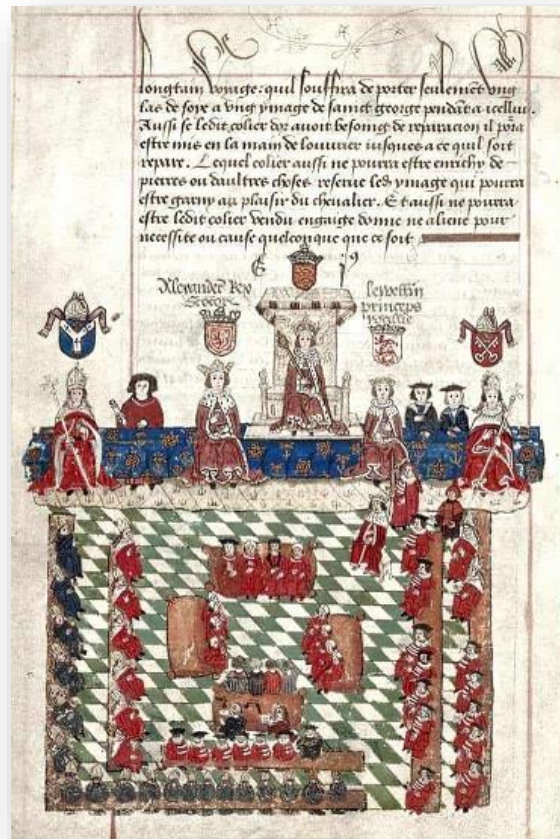 longtain voyage: quil souffira de porter seulement ung
las de soye a ung ymage de sainct george pendāt a icelluy
Aussi se ledit colier dor avoit besoing de reparacion il pōra
estre mis en la main de louvrier iusques a ce quil soit
repare. Lequel colier aussi ne pourra estre enrichy de
pierres ou daultres choses reserue leds ymage qui pourra
estre garny au plaisir du chevalier. Et aussi ne pourra
estre ledit colier vendu engaige donne ne aliene pour
necessite ou cause quelconque que ce soit
Alexander Rex
Scotor
lewellin
princeps